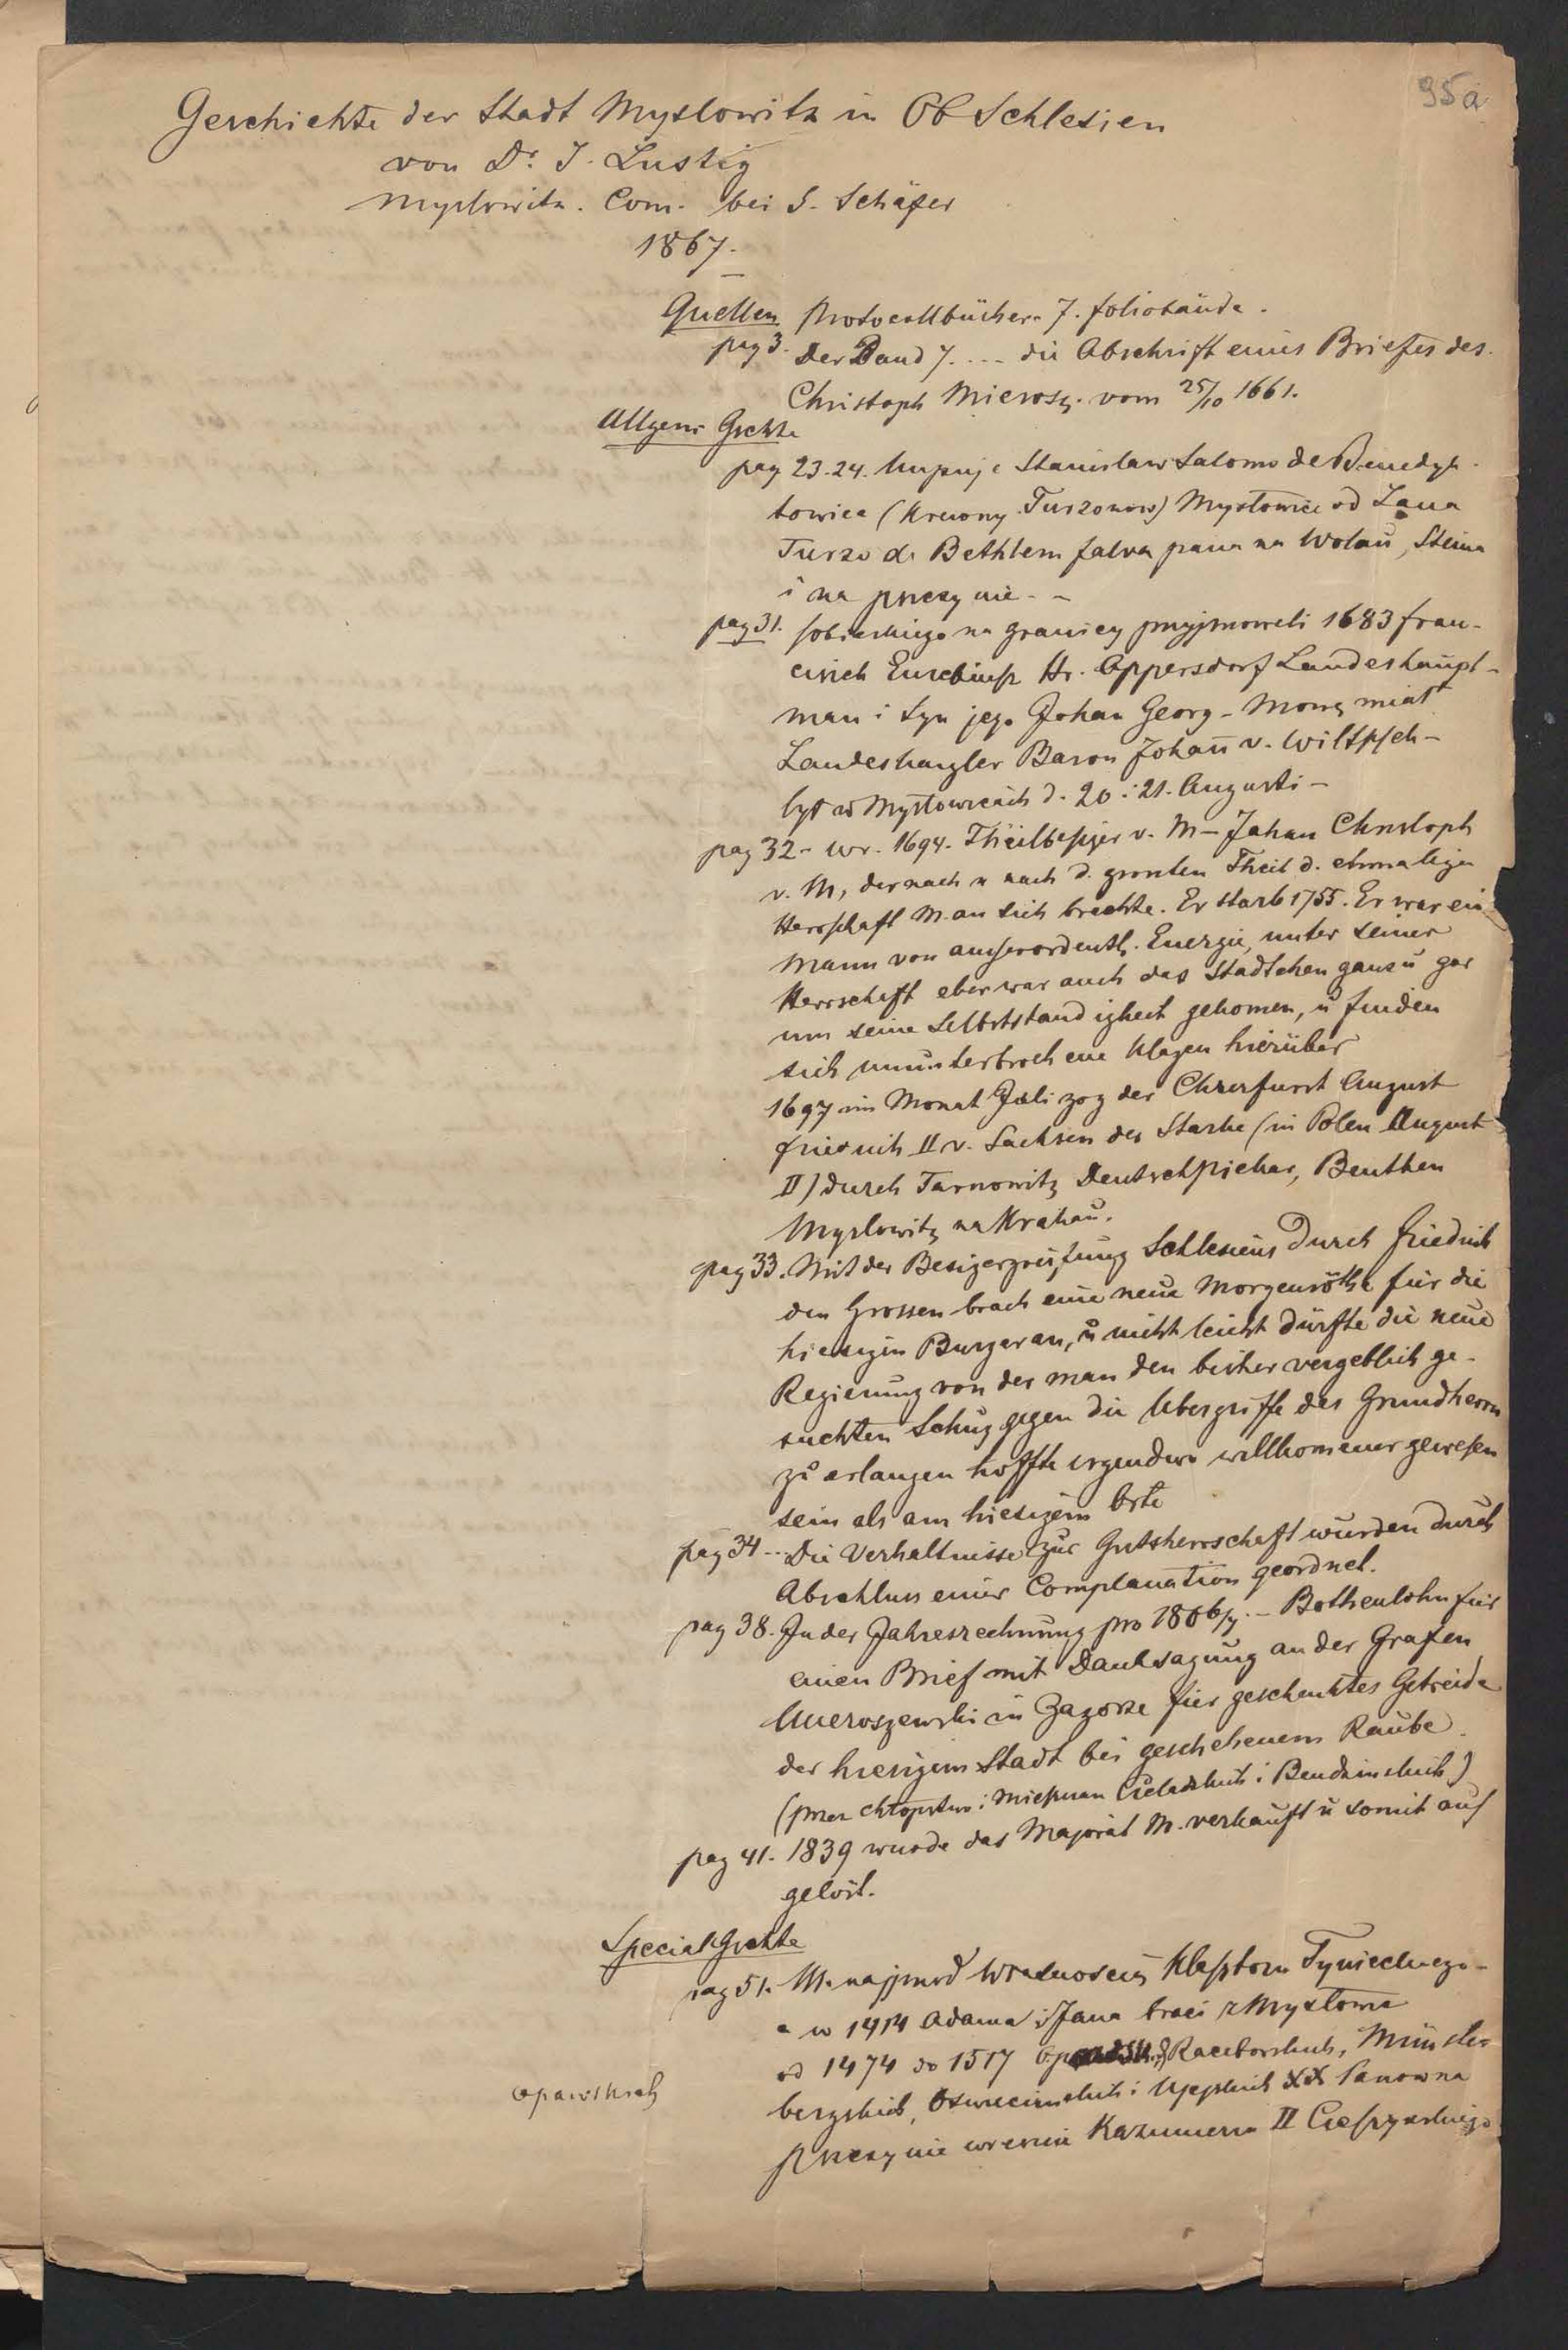 95a
Geschichte der Stadt Myslowitz in Ob Schlesien
von Dr. J. Lustig
Myslowitz. Com. bei S. Schäfer
1867.
Quellen Protocollbücher 7. foliobände.
pag 3. Der Band 7. ... die Abschrift eines Briefes des
Christoph Mierosz. vom 25/10 1661.
Allgem Gschte
pag 23-24. kupuje Stanislaw Salomo de Benedyk-
towice (krewny Turzonow) Mysłowice od Jana
Turzo de Bethlem falva pana na Wolau, Steina
i na Pszczynie - -
pag 31. Sobieskiego na granicy przyjmowali 1683 fran-
cisek Euzebiusz Hr. Oppersdorf Landeshaupt-
man i syn jego Johan Georg - Mowę miał
Landeskanzler Baron Johañ v.
był w Mysłowicach d. 20 i 21. Augusti -
pag 32 - wr. 1694. Theilbesizer v. M - Johan Christoph
v. M, der nach u nach d. grossten Theil d. ehmaligen
Herrschaft M. an sich brachte. Er starb 1755. Er war ein
Mann von ausserordentl. Energie, unter seiner
Herrschaft aber war auch das Stadtchen ganz u gar
um seine Selbststandigkeit gekomen, u finden
sich ununterbrochene Klagen hierüber
1697 im Monat Juli zog der Churfurst August
Friedrich II v. Sachsen der Starke (in Polen August
II) durch Tarnowitz Deutsch Piekar, Beuthen
Myslowitz na Krakau.
pag 33. Mit der Besizergreifung Schlesiens durch Friedrich
den Grossen brach eine neue Morgenröthe für die
hiesigen Burger an, u nicht leicht dürfte die neue
Regierung von der man den bisher vergeblich ge-
suchten Schuz gegen die Ubergriffe des Grundherrn
zu erlangen hoffte irgendwo willkomener gewesen
sein als am hiesigem Orte
pag 34 ... Die Verhaltnisse zur Gutsherrschaft wurden durch
Abschluss einer Complanation geordnet.
pag 38. In der Jahresrechnung pro 1806/7. - Bothenlohn für
einen Brief mit Danksagung an der Grafen
Mieroszewski in Zagorze für geschenktes Getreide
der hiesigem Stadt bei geschehenem Raube
(przez chłopstwo i mieszczan Czeladzkich i Bendzinskich)
pag 41. 1839 wurde das Majorat M. verkauft u somit auf
gelöst.
Special Gschte
pag 51. M. najprzod własnoscią Klasztoru Tynieckiego -
a w 1414 Adama i Jana braci z Mysłowic
od 1474 do 1517 Raciborskich, Münster
opawskich
bergskich, Oswiecimskich i XX Panow na
Pszczynie wreszcie Kazimierza II Cieszynskiego